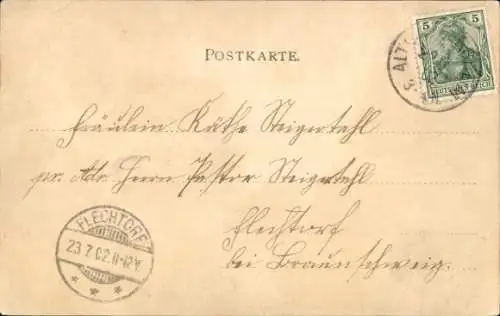 POSTKARTE.
5
ALT
DEUTSCHES REICH
Fräulein Käthe Steigertahl
pr. Adr. Herrn Pastor Steigertahl
Flechtorf
bei Braunschweig.
FLECHTORF
23.7.02.11-12V.
* * *